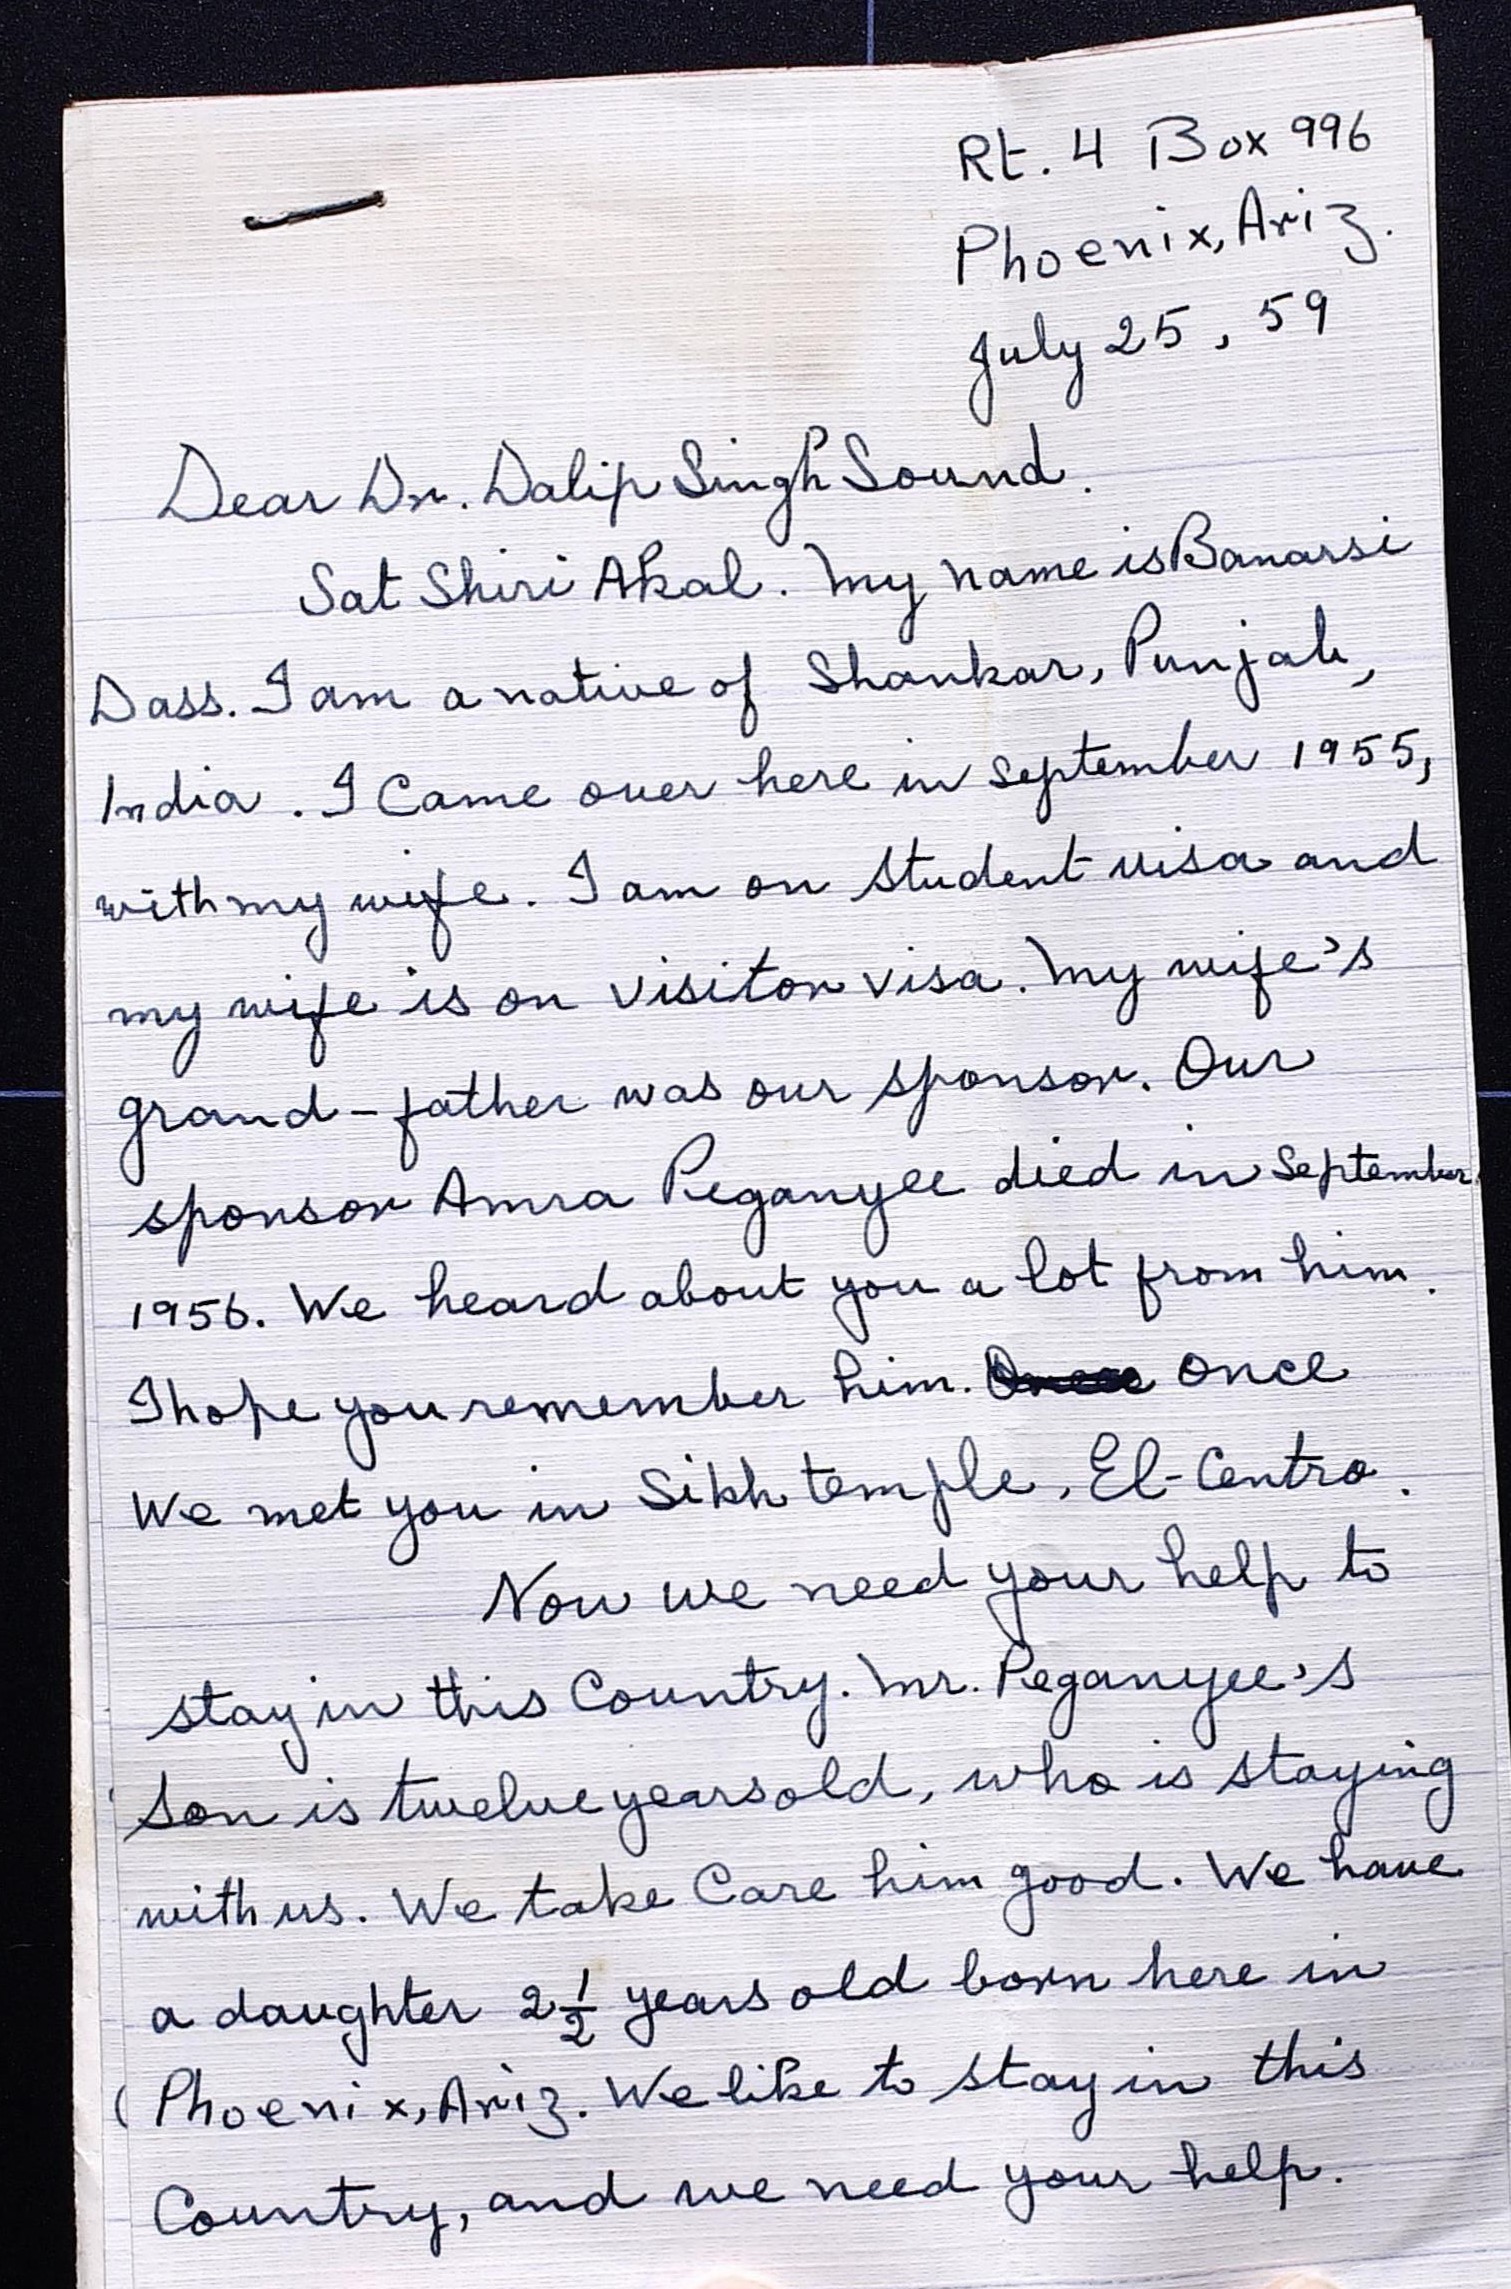 Rt. 4 Box 996
Phoenix, Ariz.
July 25, 59
Dear Dr. Dalip Singh Sound.
Sat Shiri Akal. My name is Banarsi
Dass. I am a native of Shankar, Punjab,
India. I Came over here in September 1955,
with my wife. I am on student visa and
my wife is on visitor visa. My wife's
grand-father was our sponsor. Our
sponsor Amra Peganyee died in September
1956. We heard about you a lot from him.
I hope you remember him. Once once
We met you in Sikh temple, El-Centro.
Now we need your help to
stay in this Country. Mr. Peganyee's
Son is twelve years old, who is staying
with us. We take Care him good. We have
a daughter 2 1/2 years old born here in
Phoenix, Ariz. We like to stay in this
Country, and we need your help.